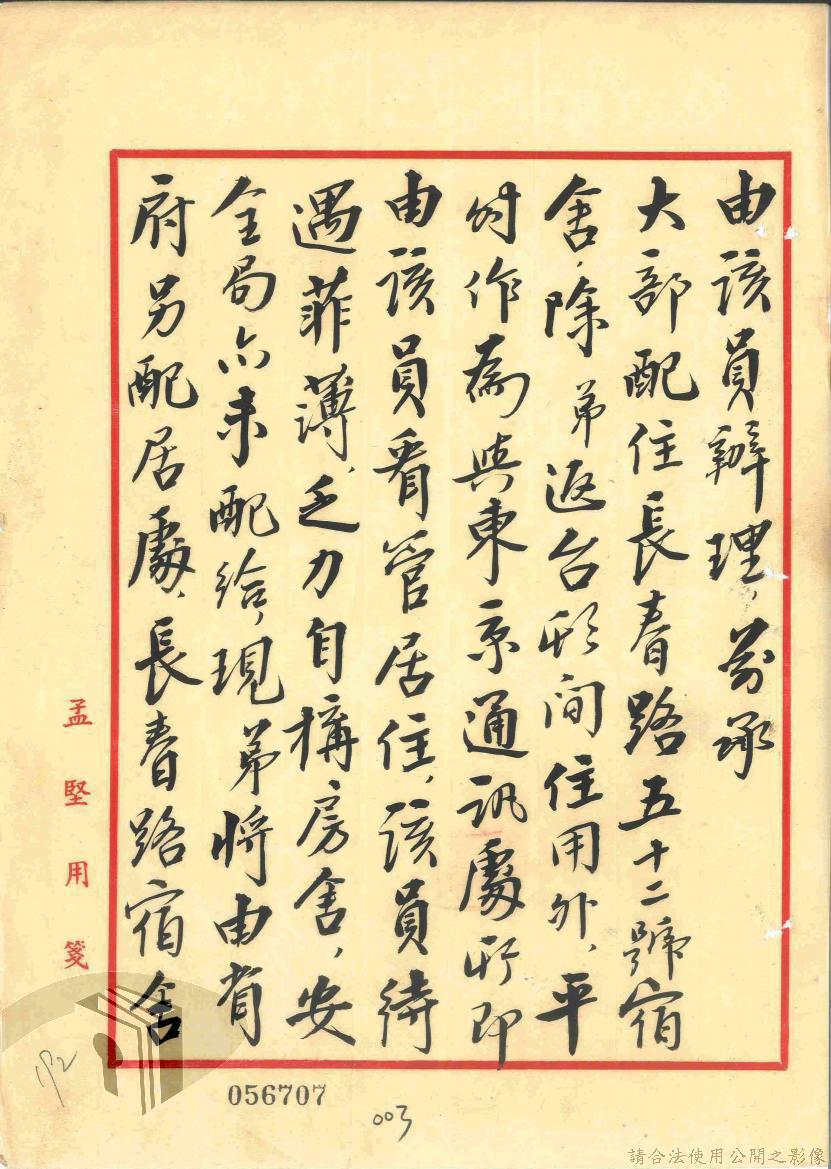 由該員辦理,茲承
大部配住長春路五十二號宿
舍,除弟返台期間住用外,平
時作為與東京通訊處所即
由該員看管居住,該員待
遇菲薄,乏力自構房舍,安
全局亦未配給,現弟將由省
府另配居處,長春路宿舍
孟堅用箋
192
056707
003
請合法使用公開之影像